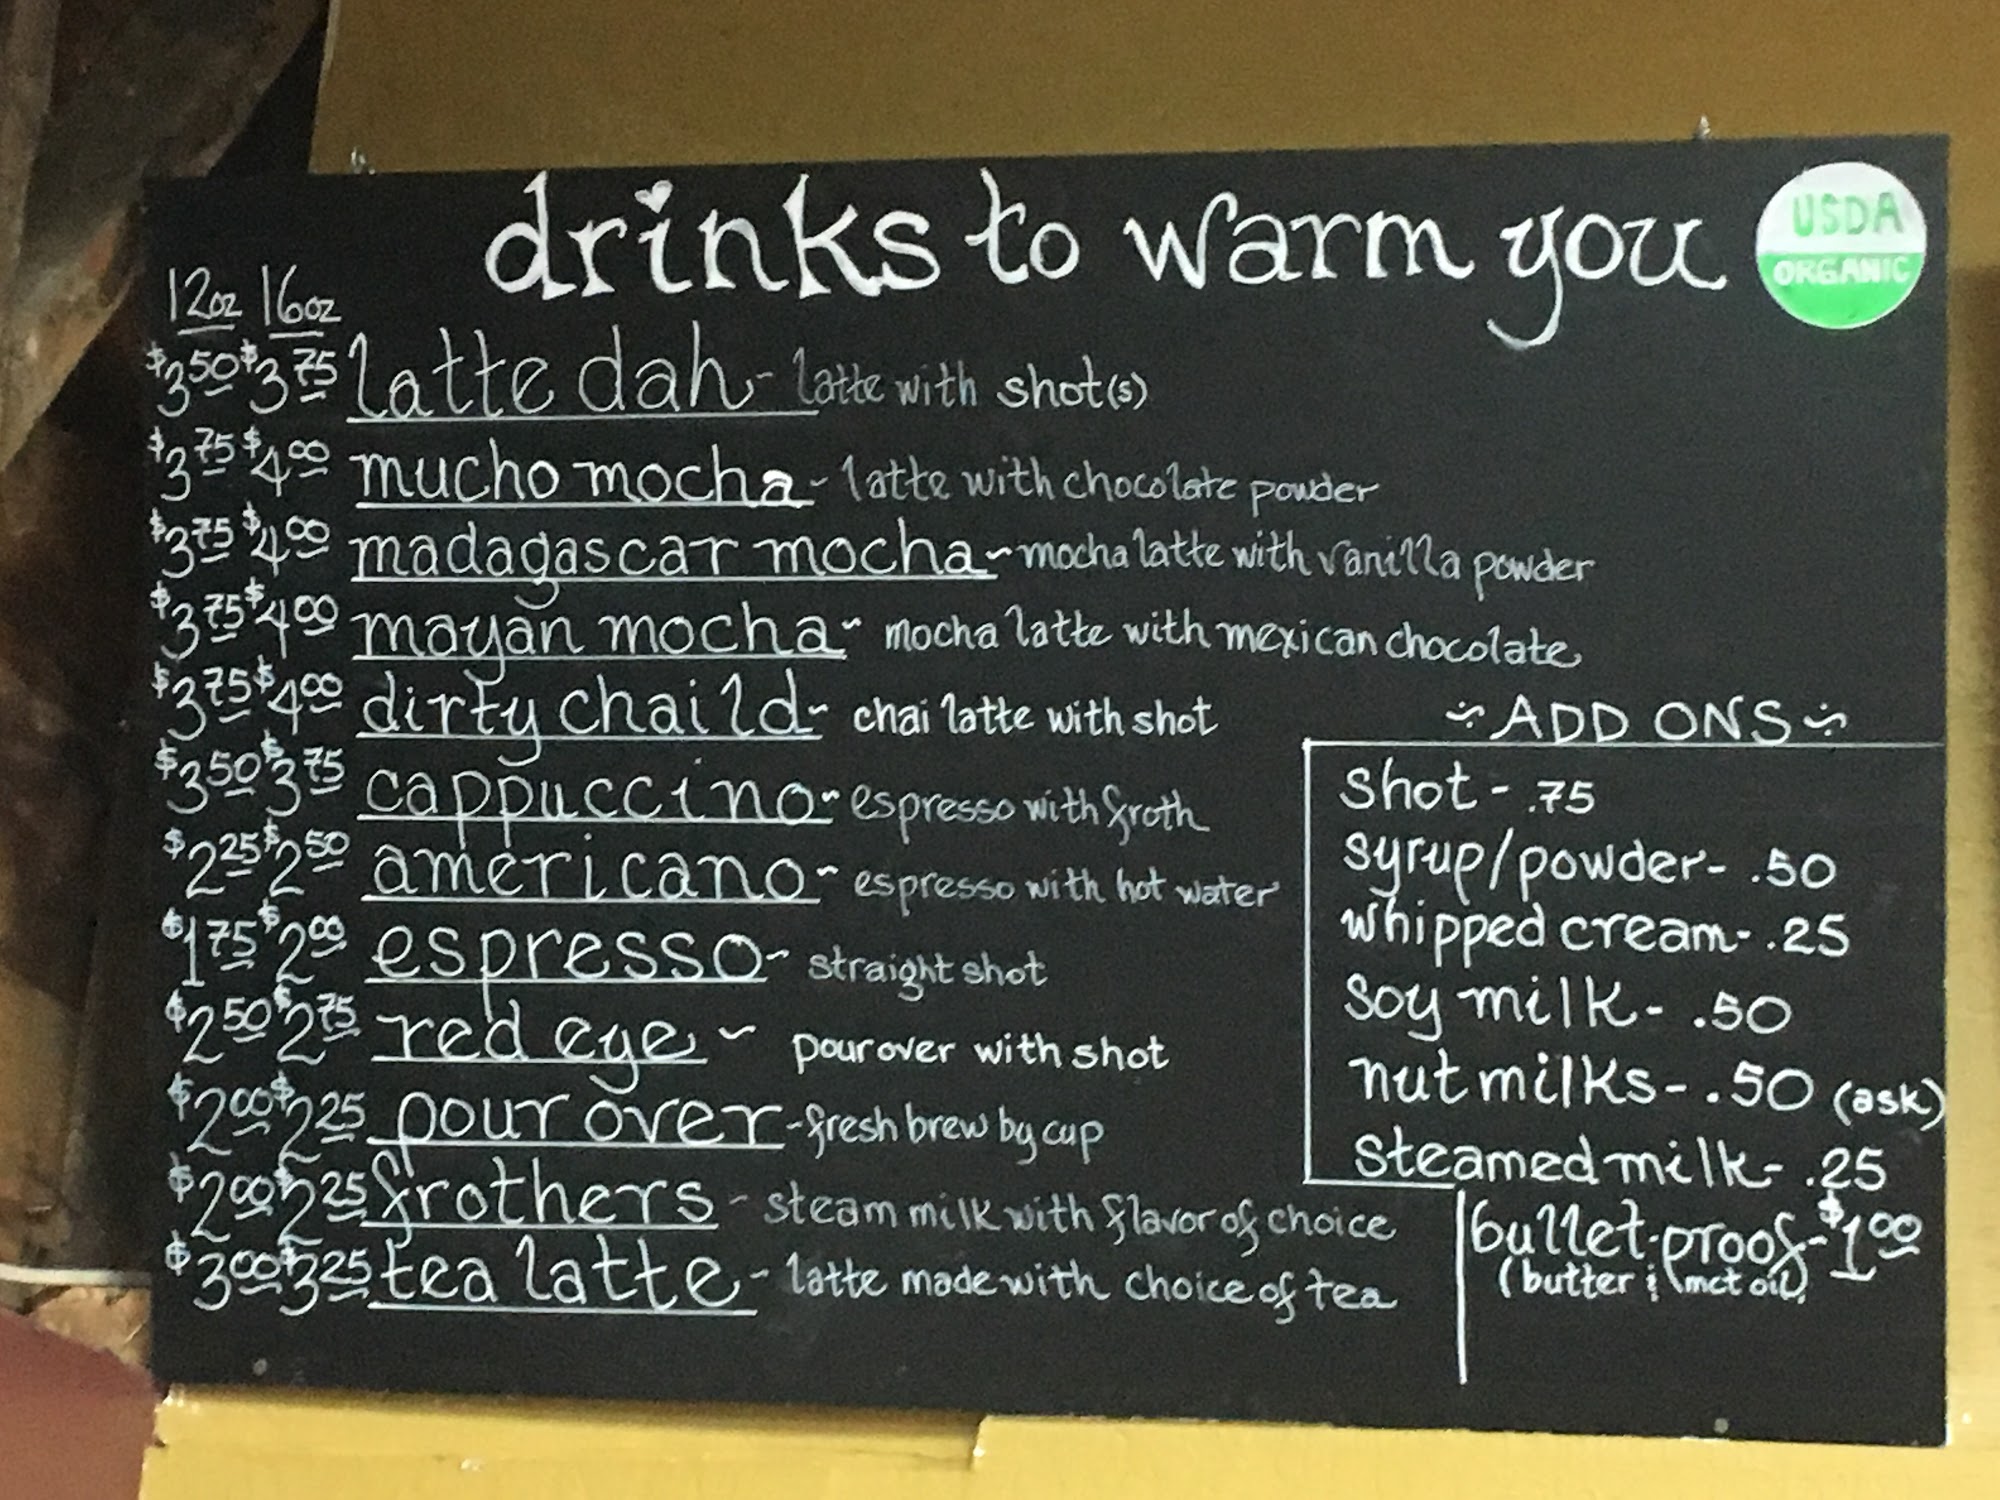 drinks to warm you
USDA
ORGANIC
12oz 16oz
$3.50 $3.75 latte dah - latte with shot(s)
$3.75 $4.00 mucho mocha - latte with chocolate powder
$3.75 $4.00 madagascar mocha ~ mocha latte with vanilla powder
$3.75 $4.00 mayan mocha ~ mocha latte with mexican chocolate
$3.75 $4.00 dirty chaild ~ chai latte with shot
$3.50 $3.75 cappuccino ~ espresso with froth
$2.25 $2.50 americano ~ espresso with hot water
$1.75 $2.00 espresso - straight shot
$2.50 $2.75 red eye ~ pour over with shot
$2.00 $2.25 pour over - fresh brew by cup
$2.00 $2.25 frothers - steam milk with flavor of choice
$3.00 $3.25 tea latte - latte made with choice of tea
ADD ONS
shot - .75
syrup/powder - .50
whipped cream - .25
soy milk - .50
nut milks - .50 (ask)
steamed milk - .25
bullet-proof - $1.00
(butter & mct oil)